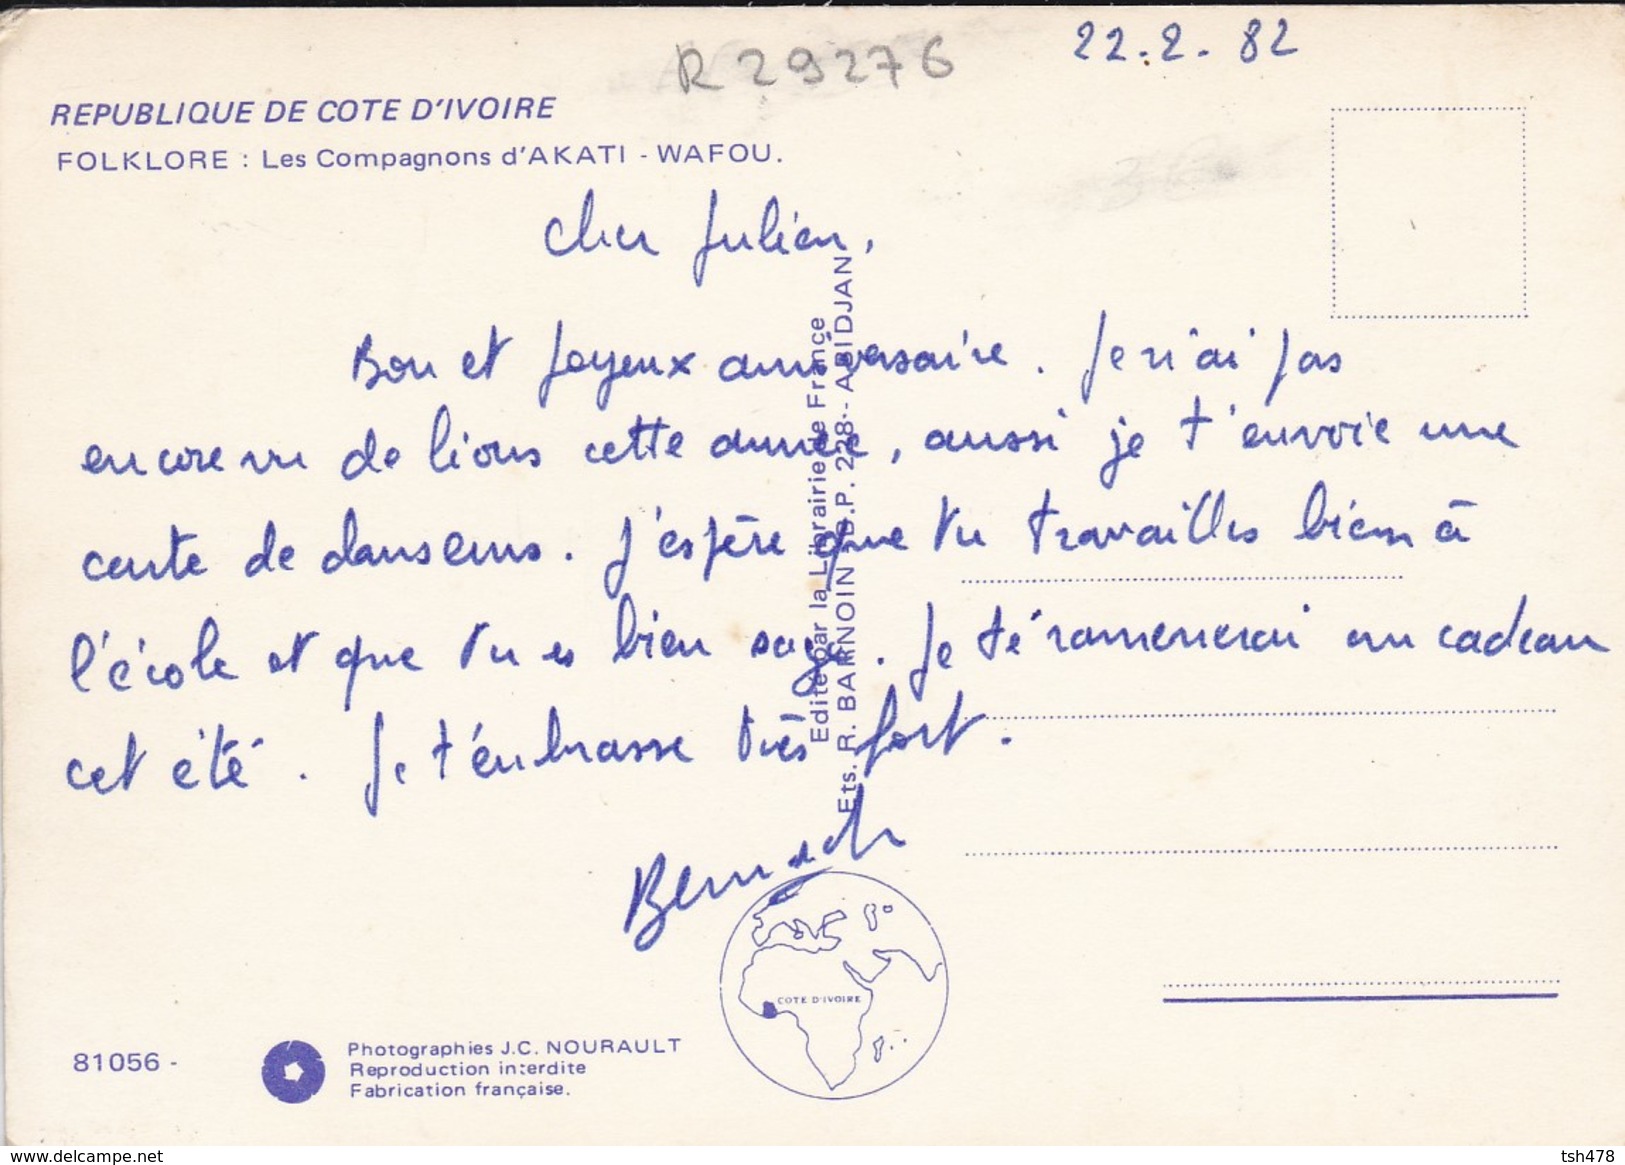 R 29276
22.2.82
REPUBLIQUE DE COTE D'IVOIRE
FOLKLORE : Les Compagnons d'AKATI - WAFOU.
Cher Julien,
Bon et Joyeux anniversaire. Je n'ai pas
encore vu de lions cette année, aussi je t'envoie une
carte de danseurs. J'espère que tu travailles bien à
l'école et que tu es bien sage. Je te ramènerai un cadeau
cet été. Je t'embrasse très fort.
Editée par la Librairie de France
Ets. R. BARNOIN B.P. 228 - ABIDJAN
COTE D'IVOIRE
81056 -
Photographies J.C. NOURAULT
Reproduction interdite
Fabrication française.
www.delcampe.net
tsh478